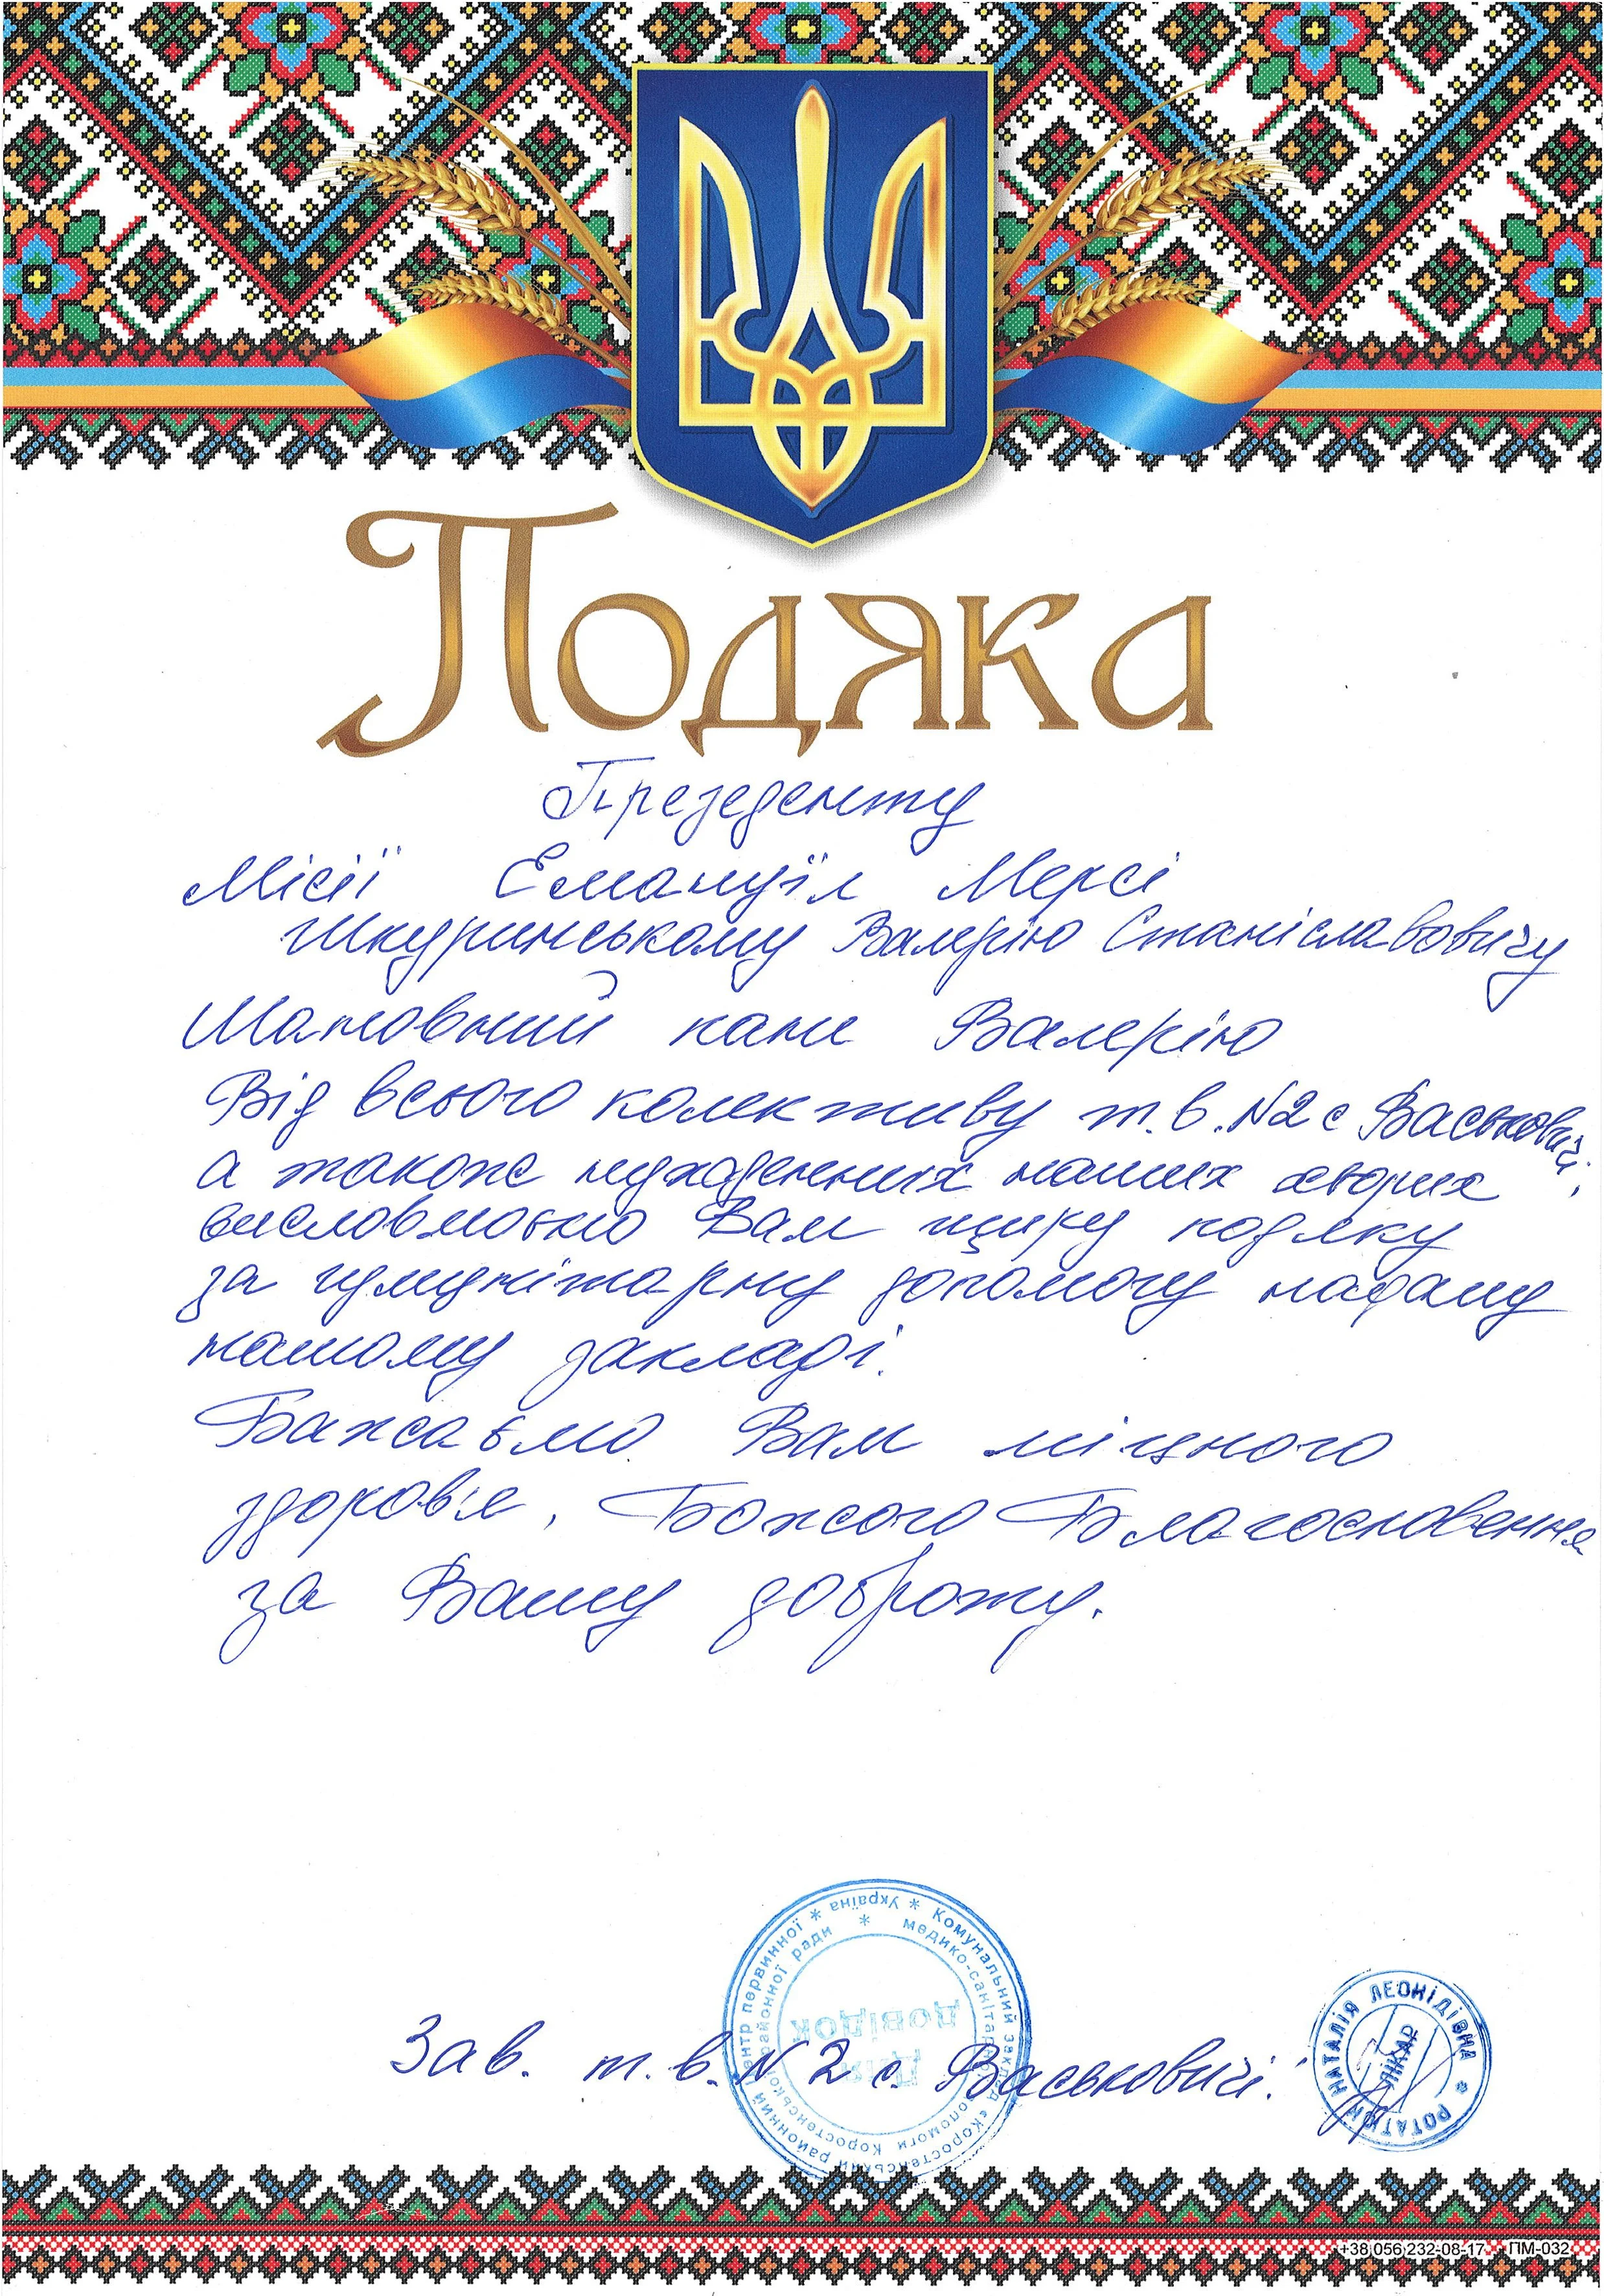 Подяка
Президенту
Місії Емануїл Мерсі
Шкуринському Валерію Станіславовичу
Шановний пане Валерію
Від всього колективу т.в. №2 с Васьковичі,
а також нужденних наших хворих
висловлюємо Вам щиру подяку
за гуманітарну допомогу надану
нашому закладі.
Бажаємо Вам міцного
здоров'я, Божого Благословення
за Вашу доброту.
Україна * Комунальний заклад «Коростенський районний центр первинної
медико-санітарної допомоги Коростенської районної ради
Для
довідок
Зав. т.в. №2 с. Васьковичі.
РОТАТЮК НАТАЛІЯ ЛЕОНІДІВНА
ЛІКАР
+38 056 232-08-17 ПМ-032